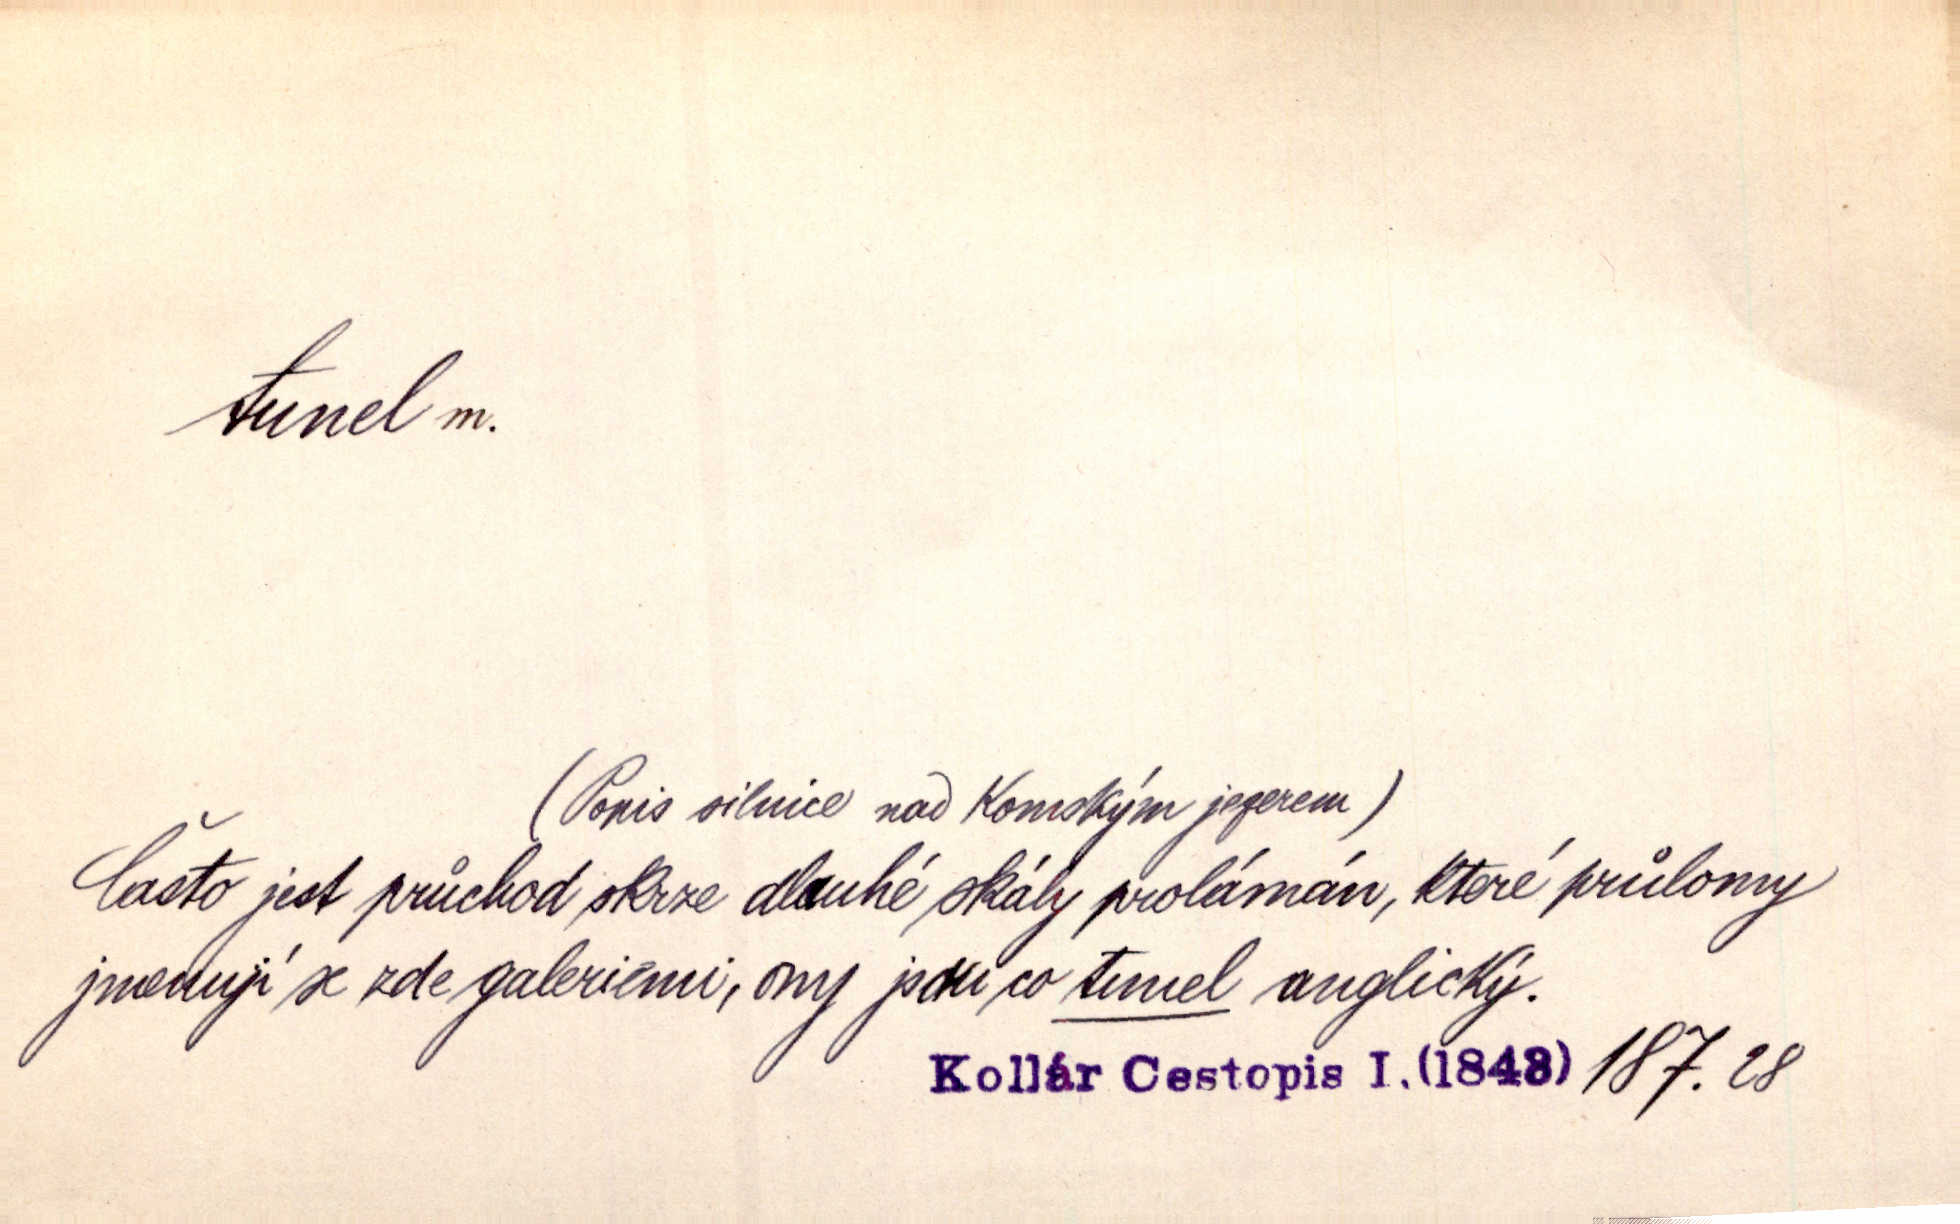 tunel m.
(Popis silnice nad Komským jezerem)
Často jest průchod skrze dlouhé skály prolámán, které průlomy
jmenují se zde galeriémi, ony jsou co tunel anglický.
Kollár Cestopis I.(1843) 187. 28